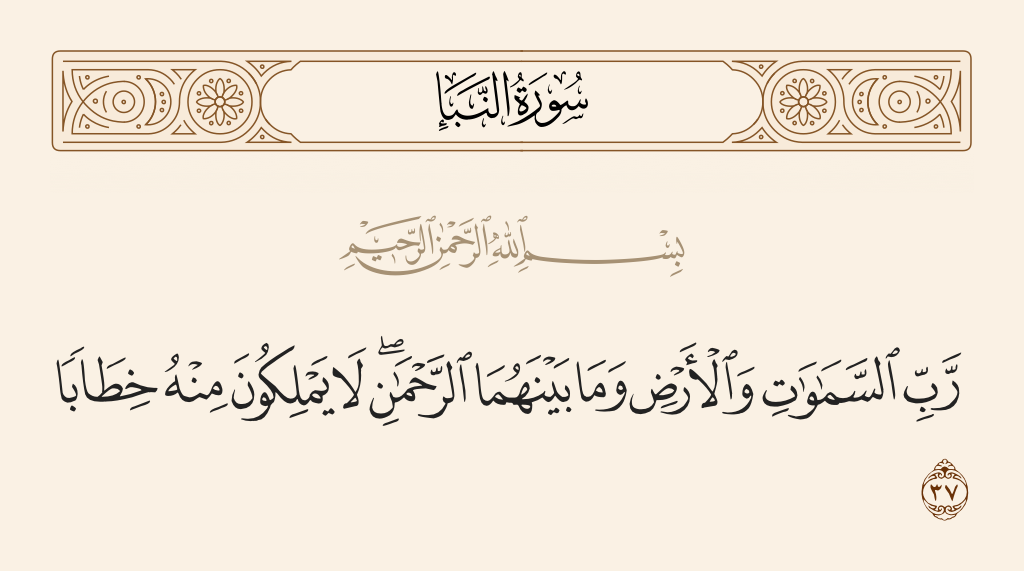 سُورَةُ النَّبَإِ
بِسْمِ ٱللَّهِ ٱلرَّحْمَٰنِ ٱلرَّحِيمِ
رَّبِّ ٱلسَّمَٰوَٰتِ وَٱلْأَرْضِ وَمَا بَيْنَهُمَا ٱلرَّحْمَٰنِ ۖ لَا يَمْلِكُونَ مِنْهُ خِطَابًا
٣٧